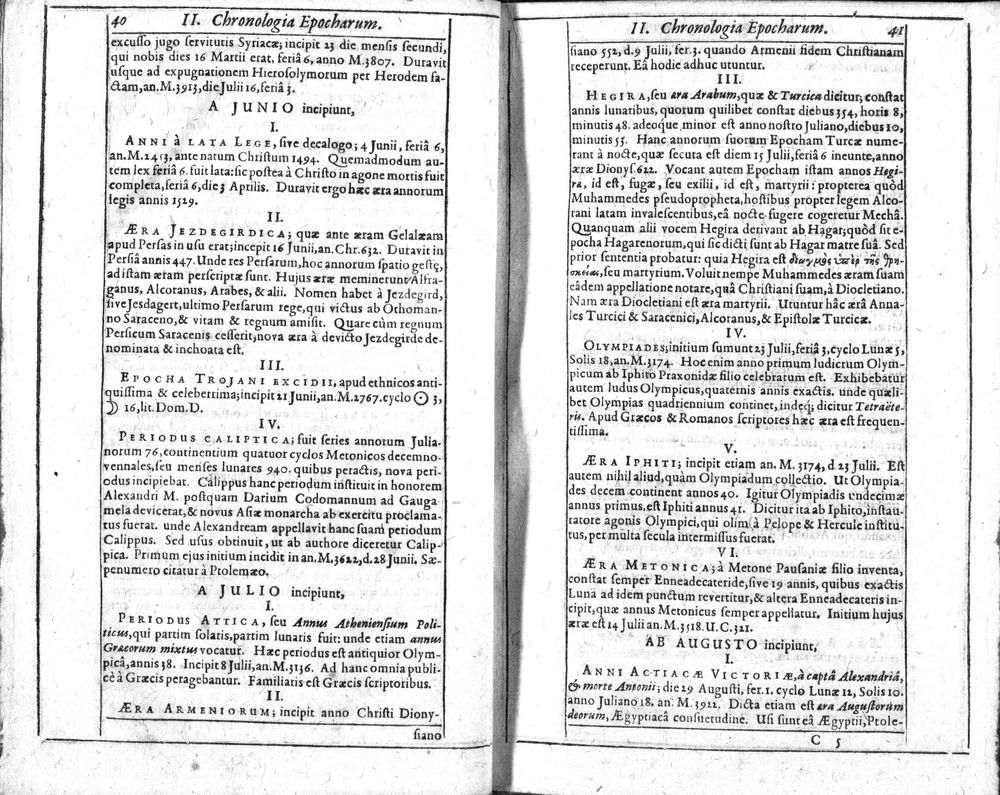 40 II. Chronologia Epocharum.
excusso jugo servitutis Syriacæ; incipit 23 die mensis secundi,
qui nobis dies 16 Martii erat, feriâ 6, anno M.3807. Duravit
usque ad expugnationem Hierosolymorum per Herodem fa-
ctam, an. M.3913, die Julii 16, feriâ 3.
A JUNIO incipiunt,
I.
ANNI à LATA LEGE, sive decalogo; 4 Junii, feriâ 6,
an. M.2453, ante natum Christum 1494. Quemadmodum au-
tem lex feriâ 6. fuit lata: sic postea à Christo in agone mortis fuit
completa, feriâ 6, die 3 Aprilis. Duravit ergo hæc æra annorum
legis annis 1529.
II.
ÆRA JEZDEGIRDICA; quæ ante æram Gelalæam
apud Persas in usu erat; incepit 16 Junii, an. Chr. 632. Duravit in
Persiâ annis 447. Unde res Persarum, hoc annorum spatio gestę,
ad istam æram perscriptæ sunt. Hujus æræ meminerunt Alfra-
ganus, Alcoranus, Arabes, & alii. Nomen habet à Jezdegird,
sive Jesdagert, ultimo Persarum rege, qui victus ab Othoman-
no Saraceno, & vitam & regnum amisit. Quare cùm regnum
Persicum Saracenis cesserit, nova æra à devicto Jezdegirde de-
nominata & inchoata est.
III.
EPOCHA TROJANI EXCIDII, apud ethnicos anti-
quissima & celeberrima; incipit 21 Junii, an. M.2767. cyclo ☉ 3,
☽ 16, lit. Dom. D.
IV.
PERIODUS CALIPTICA; fuit series annorum Julia-
norum 76, continentium quatuor cyclos Metonicos decemno-
vennales, seu menses lunares 940. quibus peractis, nova peri-
odus incipiebat. Calippus hanc periodum instituit in honorem
Alexandri M. postquam Darium Codomannum ad Gauga
mela devicerat, & novus Asiæ monarcha ab exercitu proclama-
tus fuerat. unde Alexandream appellavit hanc suam periodum
Calippus. Sed usus obtinuit, ut ab authore diceretur Calip-
pica. Primum ejus initium incidit in an. M.3622, d. 28 Junii. Sæ-
penumero citatur à Ptolemæo.
A JULIO incipiunt,
I.
PERIODUS ATTICA, seu Annus Atheniensium Poli-
ticus, qui partim solaris, partim lunaris fuit: unde etiam annus
Græcorum mixtus vocatur. Hæc periodus est antiquior Olym-
picâ, annis 38. Incipit 8 Julii, an. M.3136. Ad hanc omnia publi-
cè à Græcis peragebantur. Familiaris est Græcis scriptoribus.
II.
ÆRA ARMENIORUM; incipit anno Christi Diony-
siano
II. Chronologia Epocharum. 41
siano 552, d. 9 Julii, fer. 3. quando Armenii fidem Christianam
receperunt. Eâ hodie adhuc utuntur.
III.
HEGIRA, seu æra Arabum, quæ & Turcica dicitur; constat
annis lunaribus, quorum quilibet constat diebus 354, horis 8,
minutis 48. adeoque minor est anno nostro Juliano, diebus 10,
minutis 55. Hanc annorum suorum Epocham Turcæ nume-
rant à nocte, quæ secuta est diem 15 Julii, feriâ 6 ineunte, anno
æræ Dionys. 622. Vocant autem Epocham istam annos Hegi-
ræ, id est, fugæ, seu exilii, id est, martyrii: propterea quòd
Muhammedes pseudopropheta, hostibus propter legem Alco-
rani latam invalescentibus, eâ nocte fugere cogeretur Mechâ.
Quanquam alii vocem Hegira derivant ab Hagar; quòd sit e-
pocha Hagarenorum, qui sic dicti sunt ab Hagar matre suâ. Sed
prior sententia probatur: quia Hegira est διωγμὸς ὑπὲρ τῆς θρη-
σκείας, seu martyrium. Voluit nempe Muhammedes æram suam
eâdem appellatione notare, quâ Christiani suam, à Diocletiano.
Nam æra Diocletiani est æra martyrii. Utuntur hâc ærâ Anna-
les Turcici & Saracenici, Alcoranus, & Epistolæ Turcicæ.
IV.
OLYMPIADES; initium sumunt 23 Julii, feriâ 3, cyclo Lunæ 5,
Solis 18, an. M.3174. Hoc enim anno primum ludicrum Olym-
picum ab Iphito Praxonidæ filio celebratum est. Exhibebatur
autem ludus Olympicus, quaternis annis exactis. unde quæli-
bet Olympias quadriennium continet, indeq; dicitur Tetraëte-
ris. Apud Græcos & Romanos scriptores hæc æra est frequen-
tissima.
V.
ÆRA IPHITI; incipit etiam an. M. 3174, d 23 Julii. Est
autem nihil aliud, quàm Olympiadum collectio. Ut Olympia-
des decem continent annos 40. Igitur Olympiadis undecimæ
annus primus, est Iphiti annus 41. Dicitur ita ab Iphito, instau-
ratore agonis Olympici, qui olim à Pelope & Hercule institu-
tus, per multa secula intermissus fuerat.
VI.
ÆRA METONICA; à Metone Pausaniæ filio inventa,
constat semper Enneadecateride, sive 19 annis, quibus exactis
Luna ad idem punctum revertitur, & altera Enneadecateris in-
cipit, quæ annus Metonicus semper appellatur. Initium hujus
æræ est 14 Julii an. M.3518. U.C. 321.
AB AUGUSTO incipiunt,
I.
ANNI ACTIACÆ VICTORIÆ, à captâ Alexandriâ,
& morte Antonii; die 29 Augusti, fer. 1. cyclo Lunæ 12, Solis 10.
anno Juliano 18. an. M. 3922. Dicta etiam est æra Augustorum
deorum, Ægyptiacâ consuetudine. Usi sunt eâ Ægyptii, Ptole-
C 5